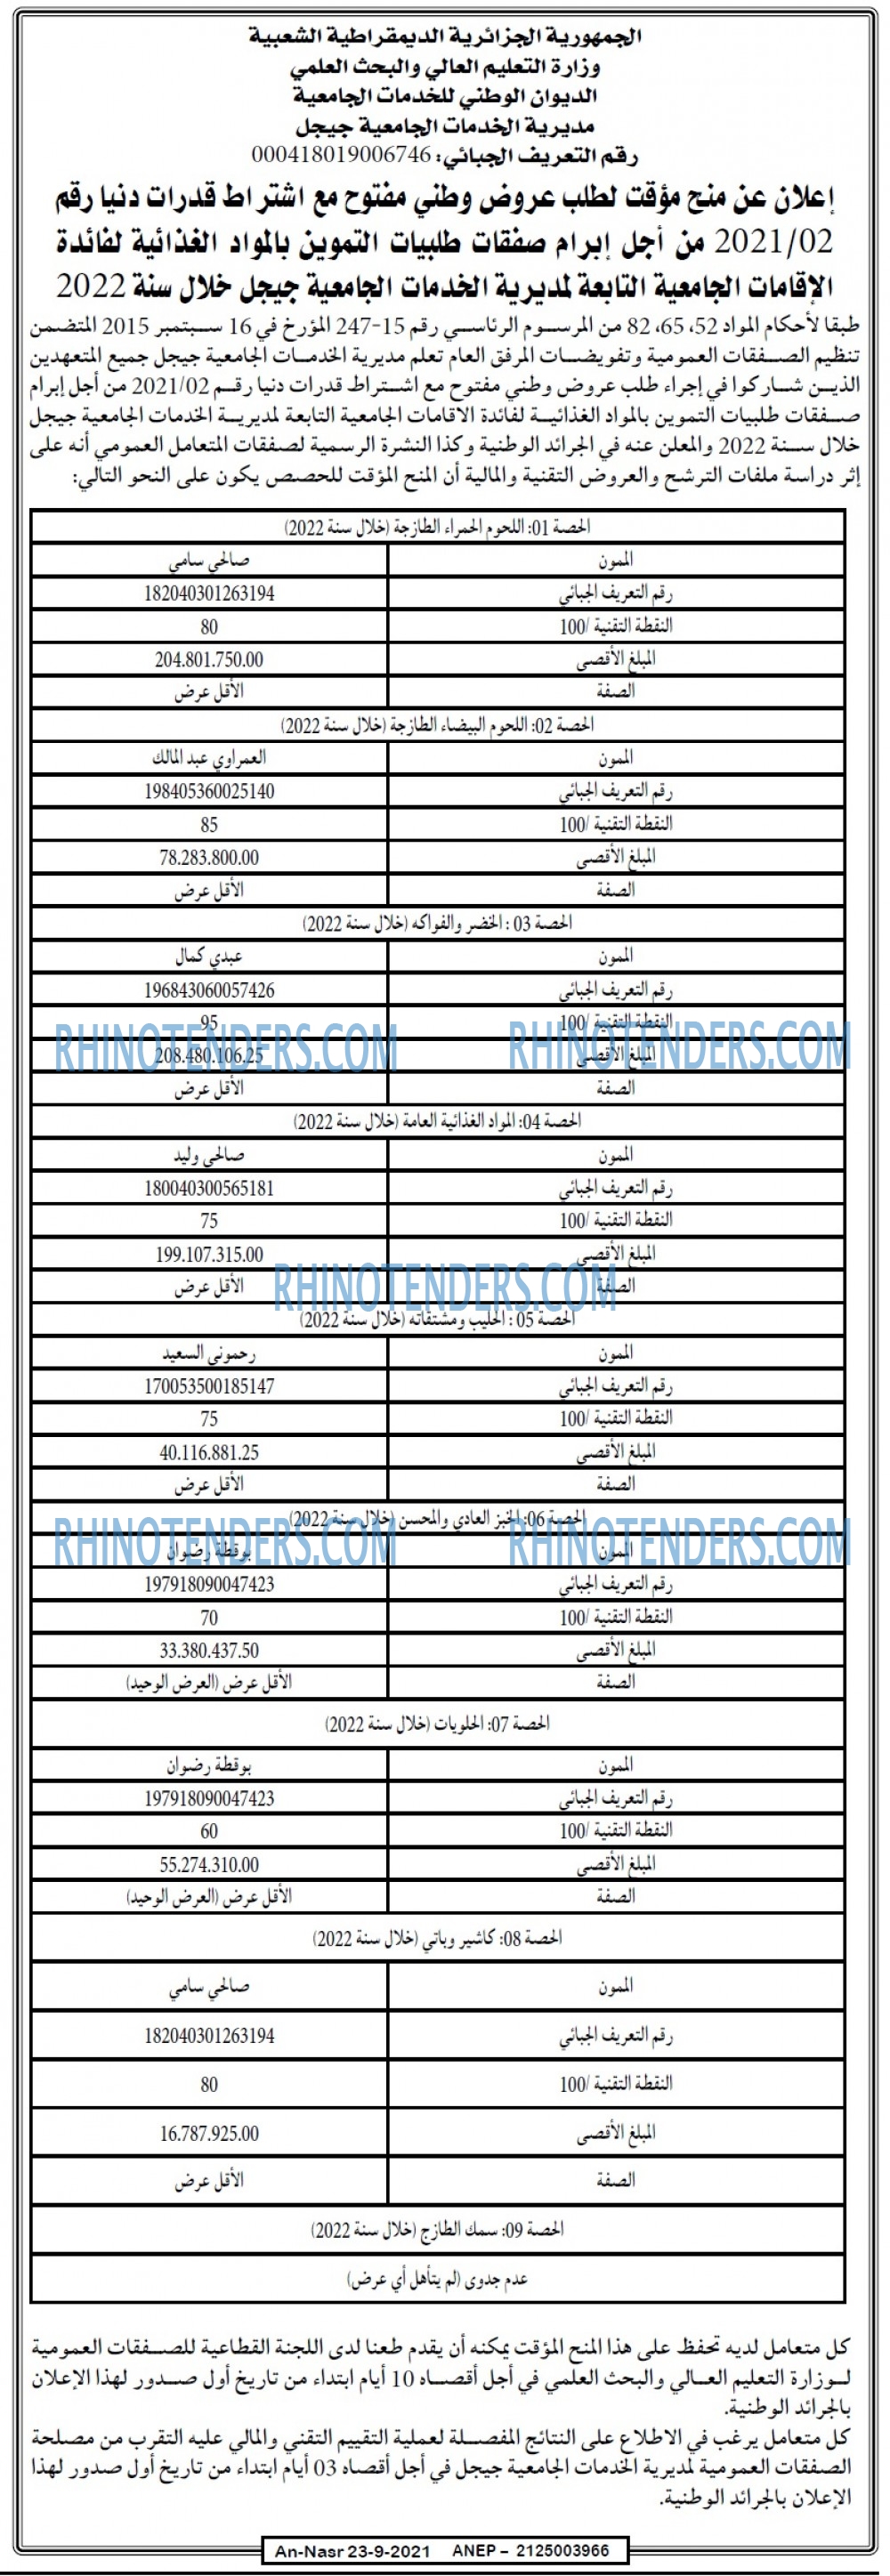 الجمهورية الجزائرية الديمقراطية الشعبية
وزارة التعليم العالي والبحث العلمي
الديوان الوطني للخدمات الجامعية
مديرية الخدمات الجامعية جيجل
رقم التعريف الجبائي: 000418019006746
إعلان عن منح مؤقت لطلب عروض وطني مفتوح مع اشتراط قدرات دنيا رقم
2021/02 من أجل إبرام صفقات طلبيات التموين بالمواد الغذائية لفائدة
الإقامات الجامعية التابعة لمديرية الخدمات الجامعية جيجل خلال سنة 2022
طبقا لأحكام المواد 52، 65، 82 من المرسوم الرئاسي رقم 15-247 المؤرخ في 16 سبتمبر 2015 المتضمن
تنظيم الصفقات العمومية وتفويضات المرفق العام تعلم مديرية الخدمات الجامعية جيجل جميع المتعهدين
الذين شاركوا في إجراء طلب عروض وطني مفتوح مع اشتراط قدرات دنيا رقم 2021/02 من أجل إبرام
صفقات طلبيات التموين بالمواد الغذائية لفائدة الاقامات الجامعية التابعة لمديرية الخدمات الجامعية جيجل
خلال سنة 2022 والمعلن عنه في الجرائد الوطنية وكذا النشرة الرسمية لصفقات المتعامل العمومي أنه على
إثر دراسة ملفات الترشح والعروض التقنية والمالية أن المنح المؤقت للحصص يكون على النحو التالي:
الحصة 01: اللحوم الحمراء الطازجة (خلال سنة 2022)
الممون صالحي سامي
رقم التعريف الجبائي 182040301263194
النقطة التقنية /100 80
المبلغ الأقصى 204.801.750.00
الصفة الأقل عرض
الحصة 02: اللحوم البيضاء الطازجة (خلال سنة 2022)
الممون العمراوي عبد المالك
رقم التعريف الجبائي 198405360025140
النقطة التقنية /100 85
المبلغ الأقصى 78.283.800.00
الصفة الأقل عرض
الحصة 03 : الخضر والفواكه (خلال سنة 2022)
الممون عبدي كمال
رقم التعريف الجبائي 196843060057426
النقطة التقنية /100 95
RHINOTENDERS.COM RHINOTENDERS.COM
المبلغ الأقصى 208.480.106.25
الصفة الأقل عرض
الحصة 04: المواد الغذائية العامة (خلال سنة 2022)
الممون صالحي وليد
رقم التعريف الجبائي 180040300565181
النقطة التقنية /100 75
المبلغ الأقصى 199.107.315.00
الصفة الأقل عرض
RHINOTENDERS.COM
الحصة 05 : الحليب ومشتقاته (خلال سنة 2022)
الممون رحموني السعيد
رقم التعريف الجبائي 170053500185147
النقطة التقنية /100 75
المبلغ الأقصى 40.116.881.25
الصفة الأقل عرض
الحصة 06: الخبز العادي والمحسن (خلال سنة 2022)
RHINOTENDERS.COM RHINOTENDERS.COM
الممون بوقطة رضوان
رقم التعريف الجبائي 197918090047423
النقطة التقنية /100 70
المبلغ الأقصى 33.380.437.50
الصفة الأقل عرض (العرض الوحيد)
الحصة 07: الحلويات (خلال سنة 2022)
الممون بوقطة رضوان
رقم التعريف الجبائي 197918090047423
النقطة التقنية /100 60
المبلغ الأقصى 55.274.310.00
الصفة الأقل عرض (العرض الوحيد)
الحصة 08: كاشير وباتي (خلال سنة 2022)
الممون صالحي سامي
رقم التعريف الجبائي 182040301263194
النقطة التقنية /100 80
المبلغ الأقصى 16.787.925.00
الصفة الأقل عرض
الحصة 09: سمك الطازج (خلال سنة 2022)
عدم جدوى (لم يتأهل أي عرض)
كل متعامل لديه تحفظ على هذا المنح المؤقت يمكنه أن يقدم طعنا لدى اللجنة القطاعية للصفقات العمومية
لوزارة التعليم العالي والبحث العلمي في أجل أقصاه 10 أيام ابتداء من تاريخ أول صدور لهذا الإعلان
بالجرائد الوطنية.
كل متعامل يرغب في الاطلاع على النتائج المفصلة لعملية التقييم التقني والمالي عليه التقرب من مصلحة
الصفقات العمومية لمديرية الخدمات الجامعية جيجل في أجل أقصاه 03 أيام ابتداء من تاريخ أول صدور لهذا
الإعلان بالجرائد الوطنية.
An-Nasr 23-9-2021 ANEP – 2125003966